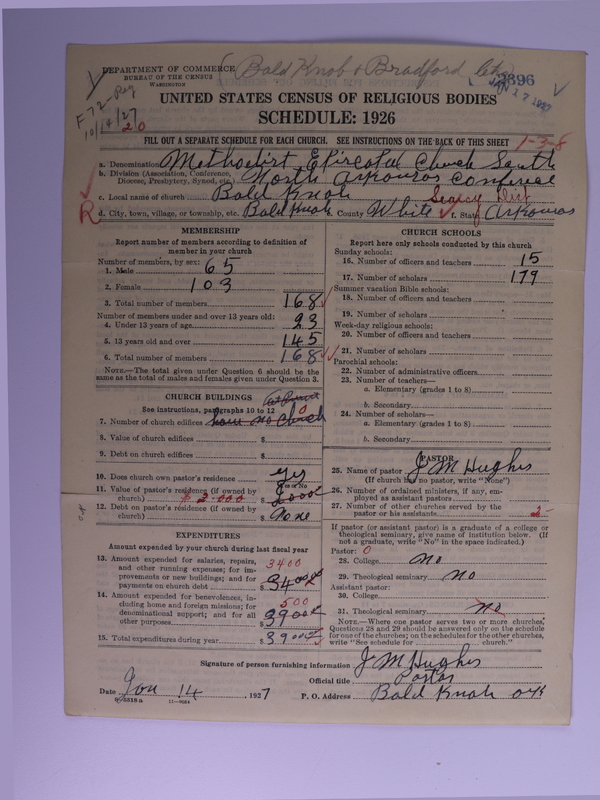 DEPARTMENT OF COMMERCE
BUREAU OF THE CENSUS
WASHINGTON
Bald Knob & Bradford
2896
JAN 17 1927
10/14/27
20
UNITED STATES CENSUS OF RELIGIOUS BODIES
SCHEDULE: 1926
FILL OUT A SEPARATE SCHEDULE FOR EACH CHURCH. SEE INSTRUCTIONS ON THE BACK OF THIS SHEET
1-3-8
a. Denomination Methodist Episcopal Church South
b. Division (Association, Conference, Diocese, Presbytery, Synod, etc.) North Arkansas Conference
c. Local name of church Bald Knob Searcy Dist
R
d. City, town, village, or township, etc. Bald Knob e. County White f. State Arkansas
MEMBERSHIP
Report number of members according to definition of member in your church
Number of members, by sex:
1. Male 65
2. Female 103
3. Total number of members 168
Number of members under and over 13 years old:
4. Under 13 years of age 23
5. 13 years old and over 145
6. Total number of members 168
NOTE.—The total given under Question 6 should be the same as the total of males and females given under Question 3.
CHURCH BUILDINGS
See instructions, paragraphs 10 to 12
at Present
7. Number of church edifices have no church 0
8. Value of church edifices $
9. Debt on church edifices $
10. Does church own pastor's residence yes
Yes or No
11. Value of pastor's residence (if owned by church) $ 2000 $ 2000
12. Debt on pastor's residence (if owned by church) $ None
EXPENDITURES
Amount expended by your church during last fiscal year
13. Amount expended for salaries, repairs, and other running expenses; for improvements or new buildings; and for payments on church debt 3400 $ 3400
14. Amount expended for benevolences, including home and foreign missions; for denominational support; and for all other purposes 500 $ 3900
15. Total expenditures during year $ 3900
CHURCH SCHOOLS
Report here only schools conducted by this church
Sunday schools:
16. Number of officers and teachers 15
17. Number of scholars 179
Summer vacation Bible schools:
18. Number of officers and teachers
19. Number of scholars
Week-day religious schools:
20. Number of officers and teachers
21. Number of scholars
Parochial schools:
22. Number of administrative officers
23. Number of teachers—
a. Elementary (grades 1 to 8)
b. Secondary
24. Number of scholars—
a. Elementary (grades 1 to 8)
b. Secondary
PASTOR
25. Name of pastor J M Hughis
(If church has no pastor, write "None")
26. Number of ordained ministers, if any, employed as assistant pastors
27. Number of other churches served by the pastor or his assistants 2
If pastor (or assistant pastor) is a graduate of a college or theological seminary, give name of institution below. (If not a graduate, write "No" in the space indicated.)
Pastor: 0
28. College No
29. Theological seminary No
Assistant pastor:
30. College
31. Theological seminary No
NOTE.—Where one pastor serves two or more churches, Questions 28 and 29 should be answered only on the schedule for one of the churches; on the schedules for the other churches, write "See schedule for church."
Signature of person furnishing information J M Hughis
Official title Pastor
Date Jan 14, 1927
P. O. Address Bald Knob Ark
8-5518a 11-9684